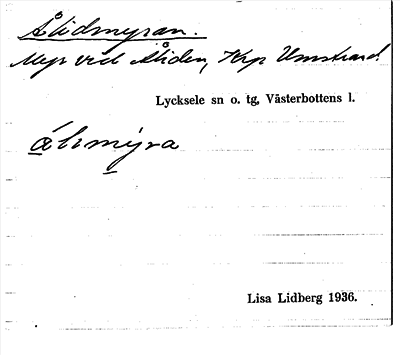 Ålidmyran.
Myr vid Åliden, Krp Umstrand
Lycksele sn o. tg, Västerbottens l.
Lisa Lidberg 1936.